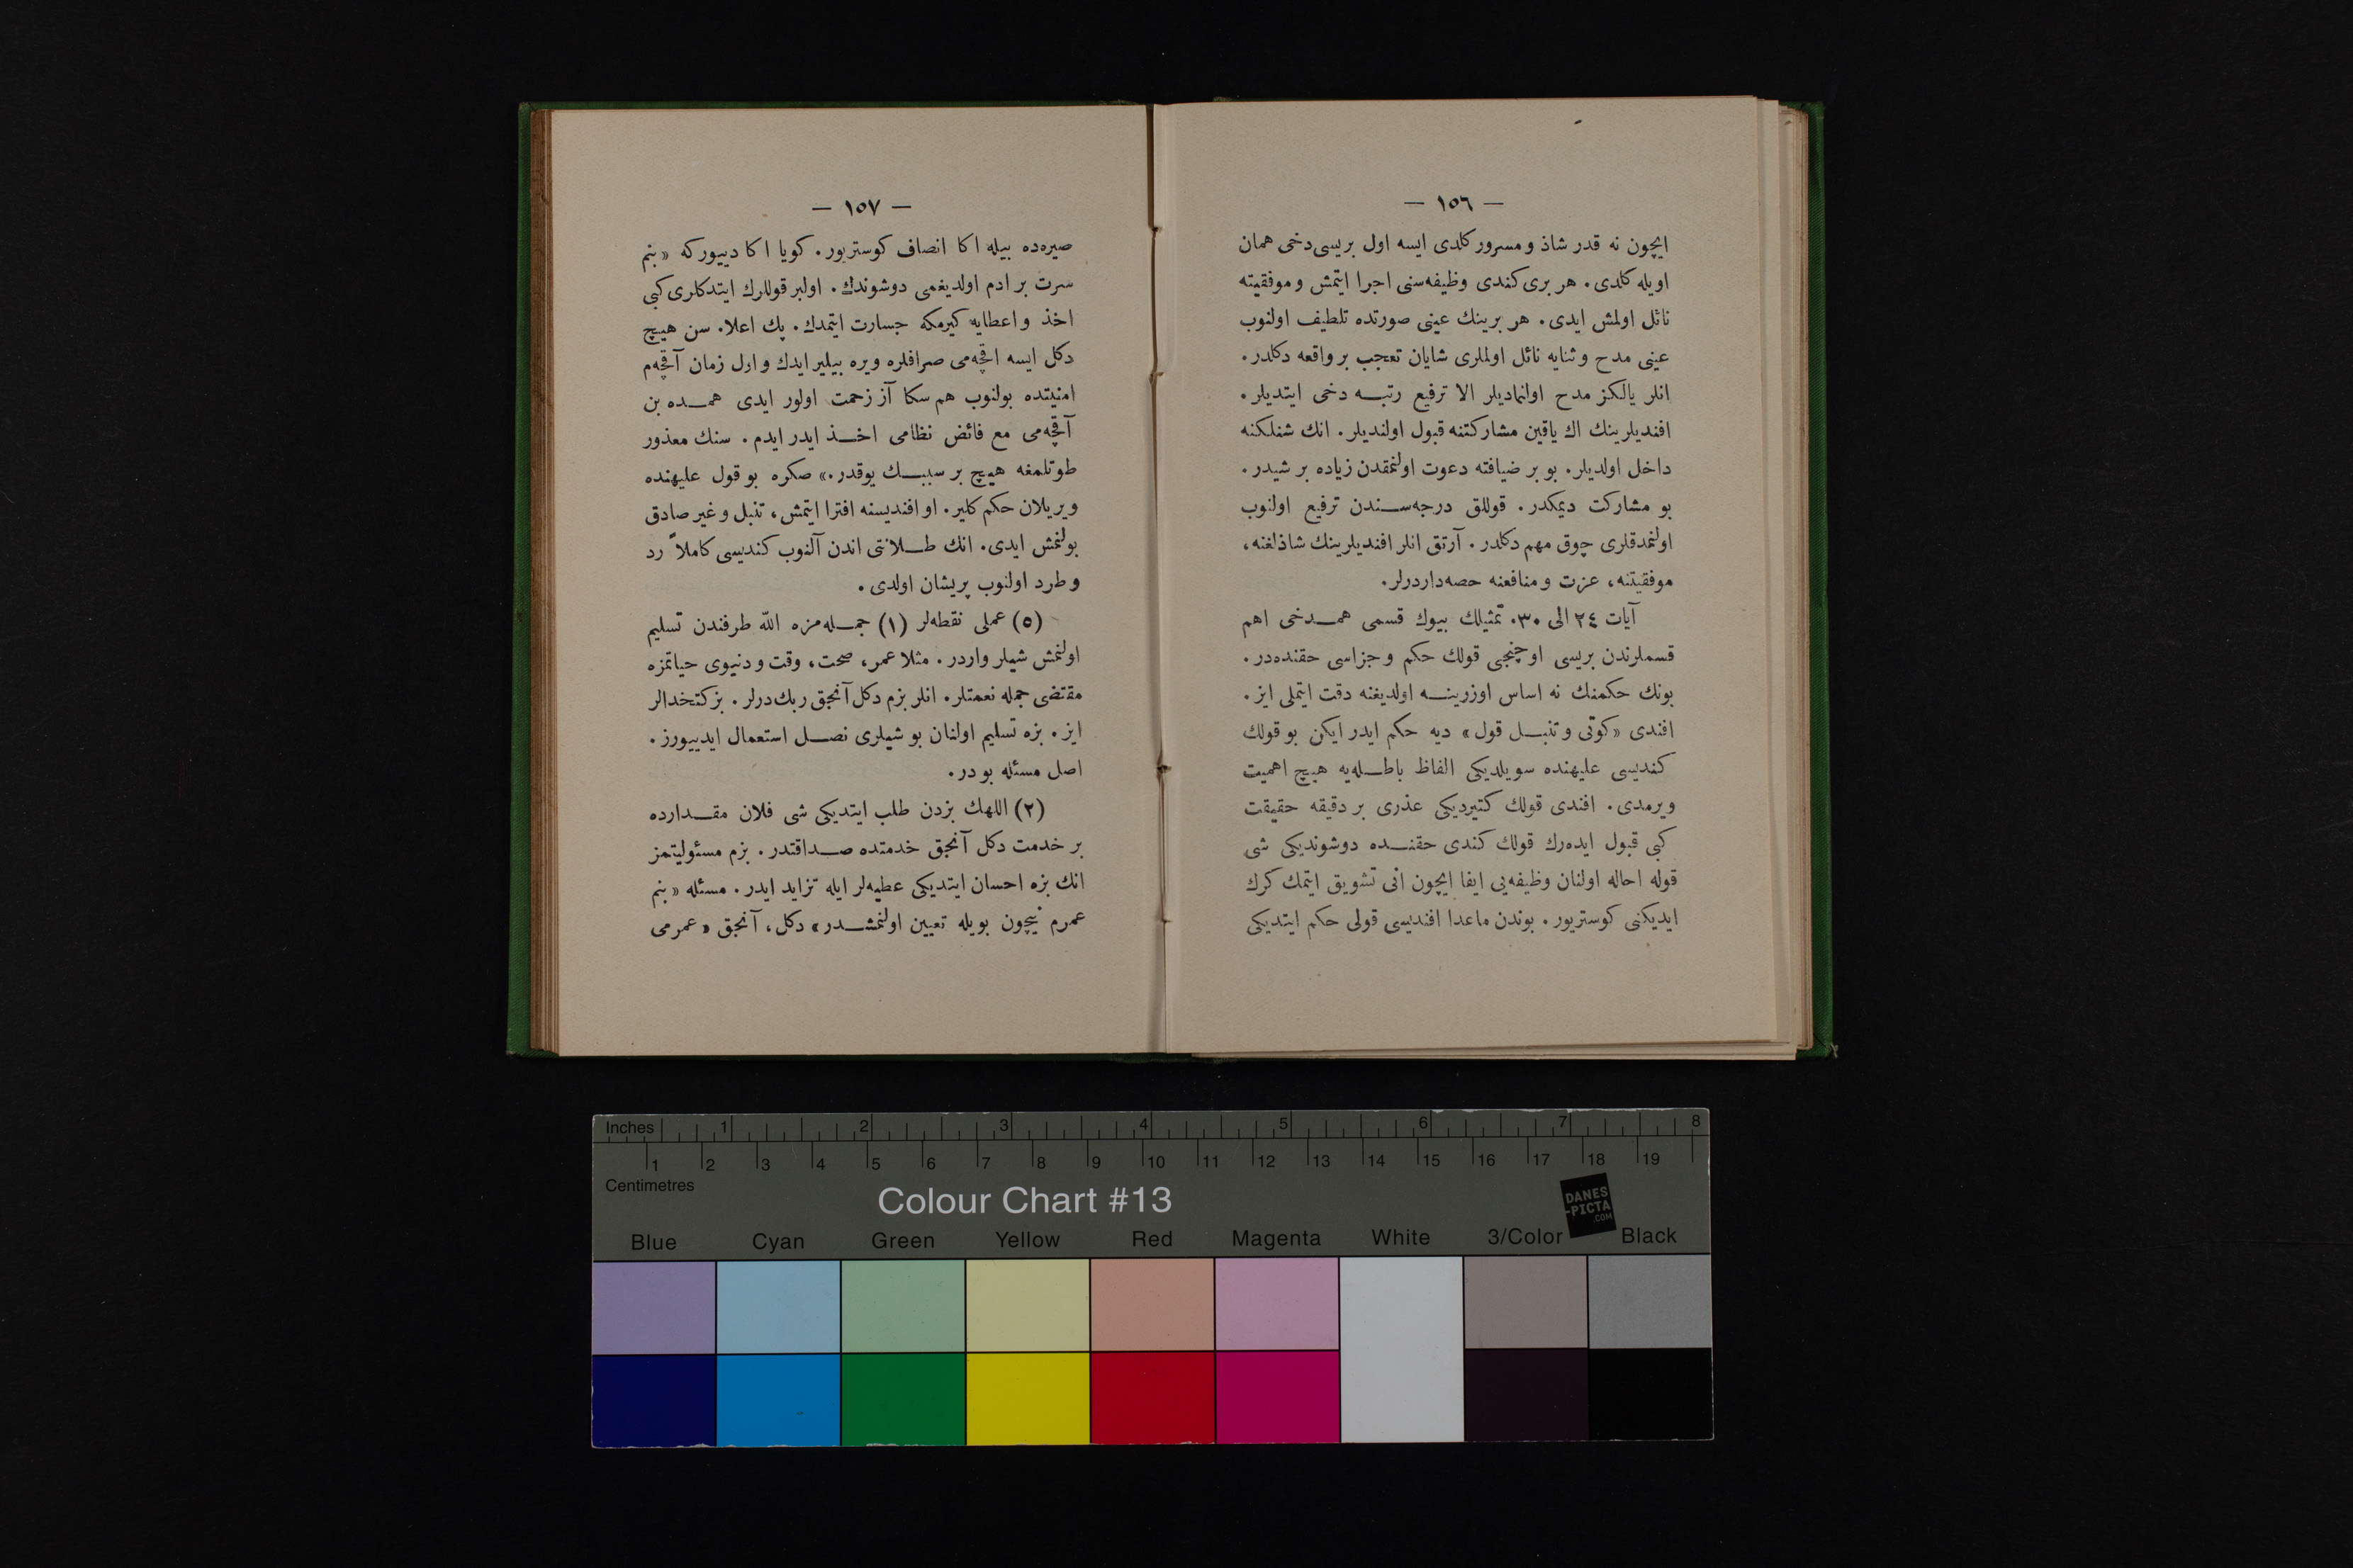 — ١٥٦ —
ايچون نه قدر شاذ و مسرور كلدى ايسه اول بريسى دخى همان
اويله كلدى. هر برى كندى وظيفه‌سنى اجرا ايتمش و موفقيته
نائل اولمش ايدى. هر برينك عينى صورتده تلطيف اولنوب
عينى مدح و ثنايه نائل اولملرى شايان تعجب بر واقعه دكلدر.
انلر يالكز مدح اولنماديلر الا ترفيع رتبــه دخى ايتديلر.
افنديلرينك اك ياقين مشاركتنه قبول اولنديلر. انك شنلكنه
داخل اولديلر. بو بر ضيافته دعوت اولنمقدن زياده بر شيدر.
بو مشاركت ديمكدر. قوللق درجه‌ســندن ترفيع اولنوب
اولنمدقلرى چوق مهم دكلدر. آرتق انلر افنديلرينك شاذلغنه،
موفقيتنه، عزت و منافعنه حصه‌داردرلر.
آيات ٢٤ الى ٣٠. تمثيلك بيوك قسمى همــدخى اهم
قسملرندن بريسى اوچنجى قولك حكم و جزاسى حقنده‌در.
بونك حكمنك نه اساس اوزرينــه اولديغنه دقت ايتملى ايز.
افندى «كوتى و تنبــل قول» ديه حكم ايدر ايكن بو قولك
كنديسى عليهنده سويلديكى الفاظ باطــله‌يه هيچ اهميت
ويرمدى. افندى قولك كتيرديكى عذرى بر دقيقه حقيقت
كبى قبول ايده‌رك قولك كندى حقنــده دوشونديكى شى
قوله احاله اولنان وظيفه‌يى ايفا ايچون انى تشويق ايتمك كرك
ايديكنى كوستريور. بوندن ماعدا افنديسى قولى حكم ايتديكى
— ١٥٧ —
صيره‌ده بيله اكا انصاف كوستريور. كويا اكا دييوركه «بنم
سرت بر ادم اولديغمى دوشوندك. اولبر قوللرك ايتدكلرى كبى
اخذ و اعطايه كيرمكه جسارت ايتمدك. پك اعلا. سن هيچ
دكل ايسه اقچه‌مى صرافلره ويره بيلير ايدك و اول زمان آقچه‌م
امنيتده بولنوب هم سكا آز زحمت اولور ايدى همــده بن
آقچه‌مى مع فائض نظامى اخــذ ايدر ايدم. سنك معذور
طوتلمغه هيچ بر سببــك يوقدر.» صكره بو قول عليهنده
ويريلان حكم كلير. او افنديسنه افترا ايتمش، تنبل و غير صادق
بولنمش ايدى. انك طــلانتى اندن آلنوب كنديسى كاملاً رد
و طرد اولنوب پريشان اولدى.
(٥) عملى نقطه‌لر (١) جمــله‌مزه الله طرفندن تسليم
اولنمش شيلر واردر. مثلا عمر، صحت، وقت و دنيوى حياتمزه
مقتضى جمله نعمتلر. انلر بزم دكل آنجق ربك‌درلر. بز كتخدالر
ايز. بزه تسليم اولنان بو شيلرى نصــل استعمال ايدييورز.
اصل مسئله بودر.
(٢) اللهك بزدن طلب ايتديكى شى فلان مقــدارده
بر خدمت دكل آنجق خدمتده صــداقتدر. بزم مسئوليتمز
انك بزه احسان ايتديكى عطيه‌لر ايله تزايد ايدر. مسئله «بنم
عمرم نيچون بويله تعيين اولنمشــدر» دكل، آنجق «عمرمى
Inches 1 2 3 4 5 6 7 8
1 2 3 4 5 6 7 8 9 10 11 12 13 14 15 16 17 18 19
Centimetres
Colour Chart #13
DANES
-PICTA
.COM
Blue Cyan Green Yellow Red Magenta White 3/Color Black